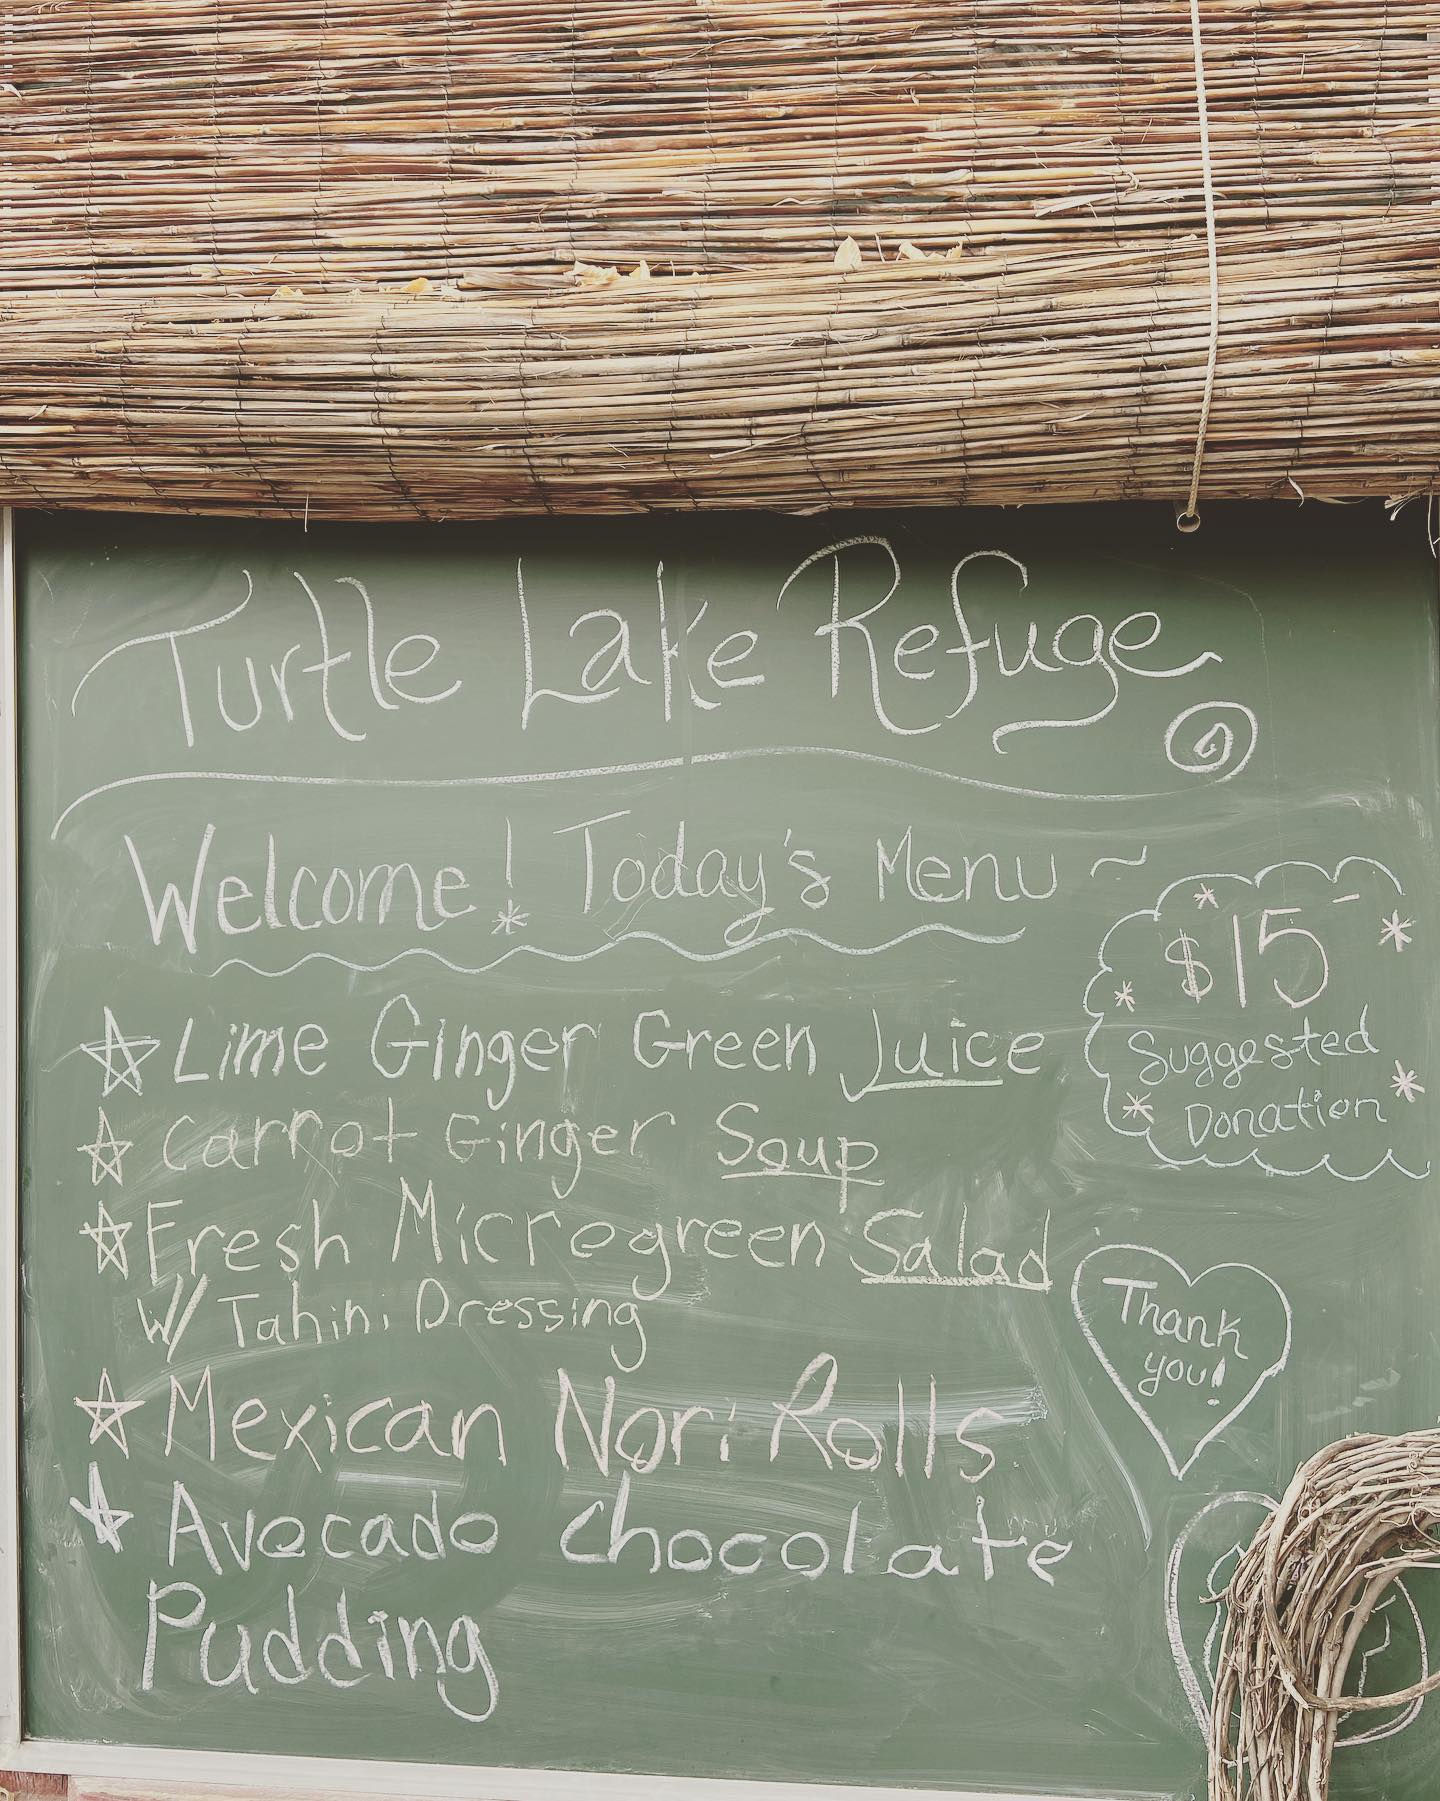 Turtle Lake Refuge
Welcome! Today's Menu ~
$15
Suggested
Donation
Lime Ginger Green Juice
Carrot Ginger Soup
Fresh Microgreen Salad
W/ Tahini Dressing
Thank
you!
Mexican Nori Rolls
Avocado Chocolate
Pudding